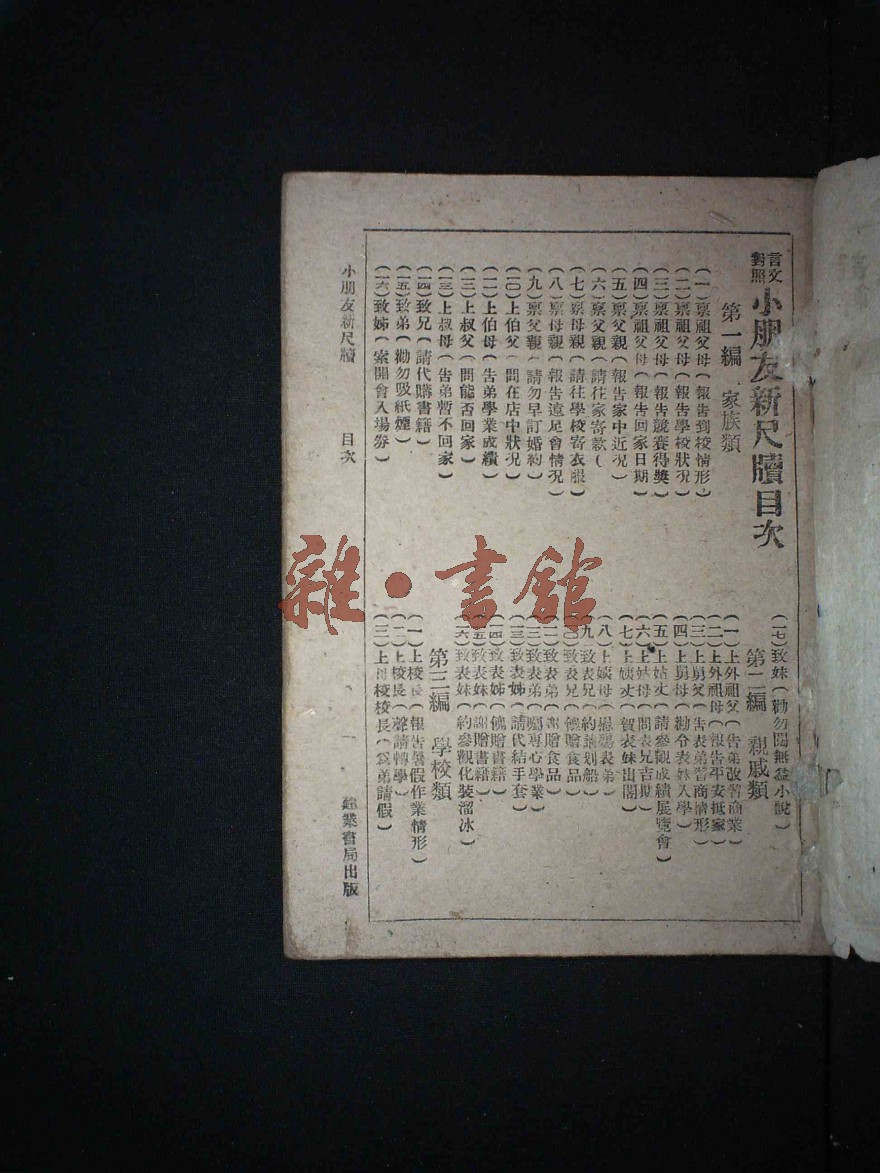 言文對照 小朋友新尺牘目次
第一編 家族類
(一)禀祖父母(報告到校情形)
(二)禀祖父母(報告學校狀况)
(三)禀祖父母(報告競賽得獎)
(四)禀祖父母(報告回家日期)
(五)禀父親(報告家中近况)
(六)禀父親(請往家寄款(
(七)禀母親(請往學校寄衣服)
(八)禀母親(報告遠足會情况)
(九)禀父親(請勿早訂婚約)
(一〇)上伯父(問在店中狀况)
(一一)上伯母(告弟學業成績)
(一二)上叔父(問能否回家)
(一三)上叔母(告弟暫不回家)
(一四)致兄(請代購書籍)
(一五)致弟(勸勿吸紙煙)
(一六)致姊(索開會入場券)
(一七)致妹(勸勿閱無益小說)
第二編 親戚類
(一)上外祖父(告弟改習商業)
(二)上外祖母(報告平安抵家)
(三)上舅父(告表弟習商情形)
(四)上舅母(勸令表妹入學)
(五)上姑丈(請參觀成績展覽會)
(六)上姑母(問表兄吉期)
(七)上姨丈(賀表妹出閣)
(八)上姨母(慰殤表弟)
九)致表兄(約划船)
〇)致表兄(餽贈食品)
(一一)致表弟(謝贈食品)
(一二)致表弟(囑專心學業)
(一三)致表姊(請代結手套)
(一四)致表姊(餽贈書籍)
(一五)致表妹(謝贈書籍)
(一六)致表妹(約參觀化裝溜冰)
第三編 學校類
(一)上校長(報告暑假作業情形)
(二)上校長(聲請轉學)
(三)上校校長(爲弟請假)
小朋友新尺牘 目次 一 業書局出版
雜·書館